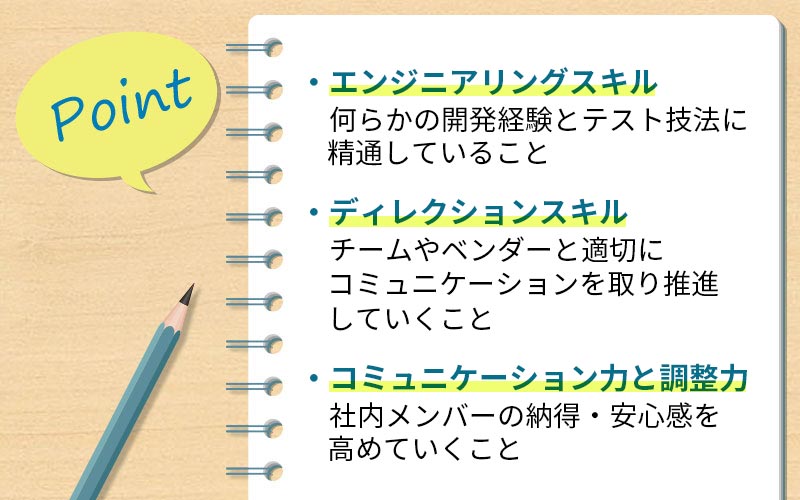 Point
・エンジニアリングスキル
何らかの開発経験とテスト技法に
精通していること
・ディレクションスキル
チームやベンダーと適切に
コミュニケーションを取り推進
していくこと
・コミュニケーション力と調整力
社内メンバーの納得・安心感を
高めていくこと